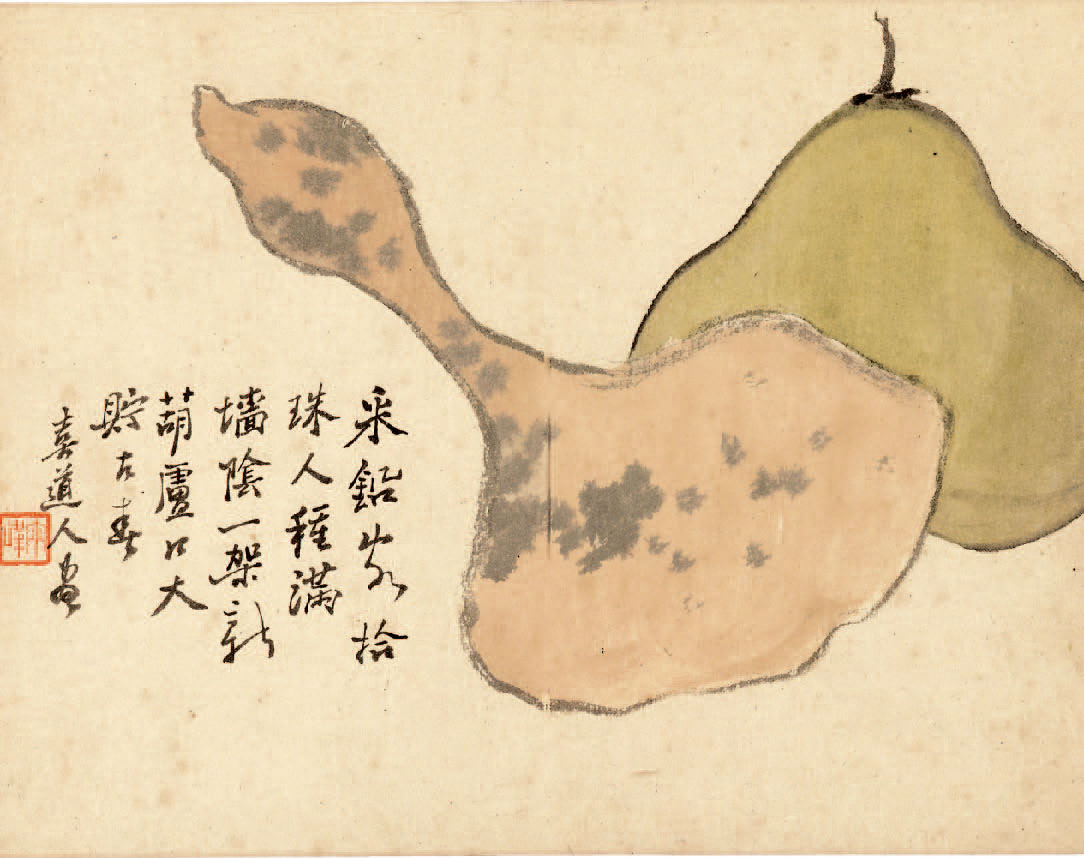 采鉛客拾
珠人種滿
墻陰一架新
葫蘆口大
貯古春
喜道人畫